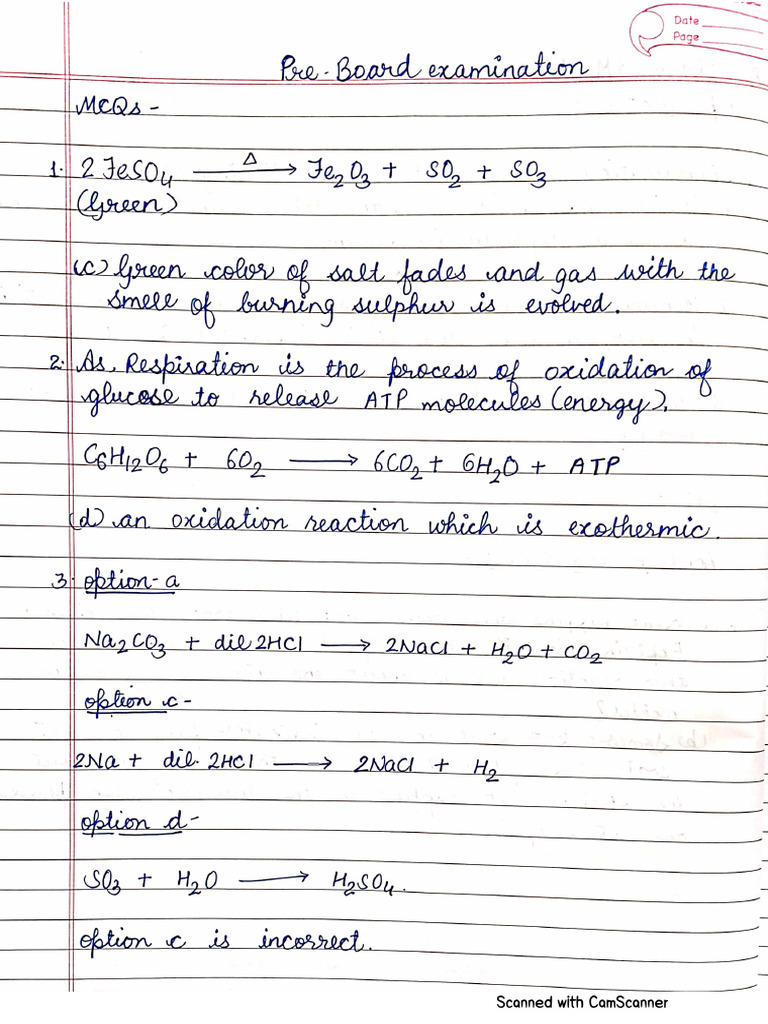 Date
Page
Pre-Board examination
MCQs -
1. 2 FeSO₄ —Δ→ Fe₂O₃ + SO₂ + SO₃
(Green)
(c) Green color of salt fades and gas with the
smell of burning sulphur is evolved.
2. As, Respiration is the process of oxidation of
glucose to release ATP molecules (energy).
C₆H₁₂O₆ + 6O₂ → 6CO₂ + 6H₂O + ATP
(d) an oxidation reaction which is exothermic.
3. option-a
Na₂CO₃ + dil 2HCl → 2NaCl + H₂O + CO₂
option c-
2Na + dil. 2HCl → 2NaCl + H₂
option d-
SO₃ + H₂O → H₂SO₄.
option c is incorrect.
Scanned with CamScanner